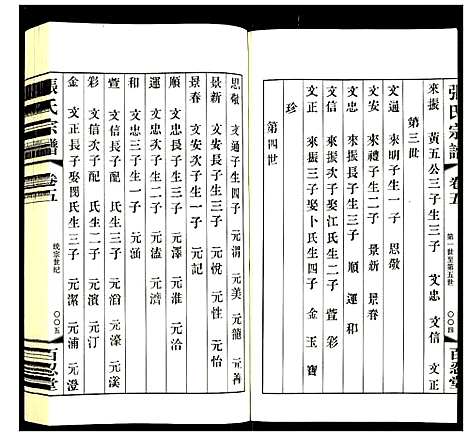 張氏宗譜 卷五 第一世至第五世 〇〇四 百忍堂
來振 黃五公三子生三子 文忠 文信 文正
第三世
文通 來明子生一子 思敬
文安 來禮子生二子 景新 景春
文忠 來振長子生三子 順 運 和
文信 來振次子娶江氏生二子 萱 彩
文正 來振三子娶卜氏生四子 金 玉 寶
珍
第四世
思敬 文通子生四子 元涓 元美 元龍 元善
景新 文安長子生三子 元悅 元性 元怡
景春 文安次子生一子 元記
順 文忠長子生三子 元澤 元淮 元洽
運 文忠次子生二子 元溘 元濟
和 文忠三子生一子 元涵
萱 文信長子配 氏生三子 元滔 元濠 元溪
彩 文信次子配 氏生二子 元濱 元汀
金 文正長子娶閔氏生三子 元潔 元浦 元澄
張氏宗譜 卷五 統宗世紀 〇〇五 百忍堂